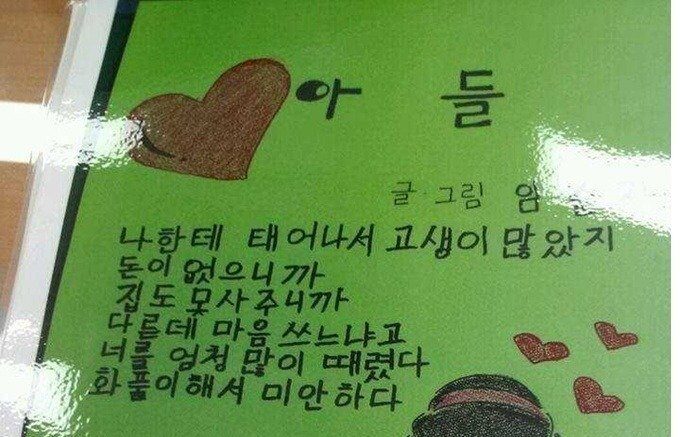 아 들
글·그림
나한테 태어나서 고생이 많았지
돈이 없으니까
집도 못사주니까
다른데 마음쓰느냐고
너를 엄청 많이 때렸다
화풀이해서 미안하다